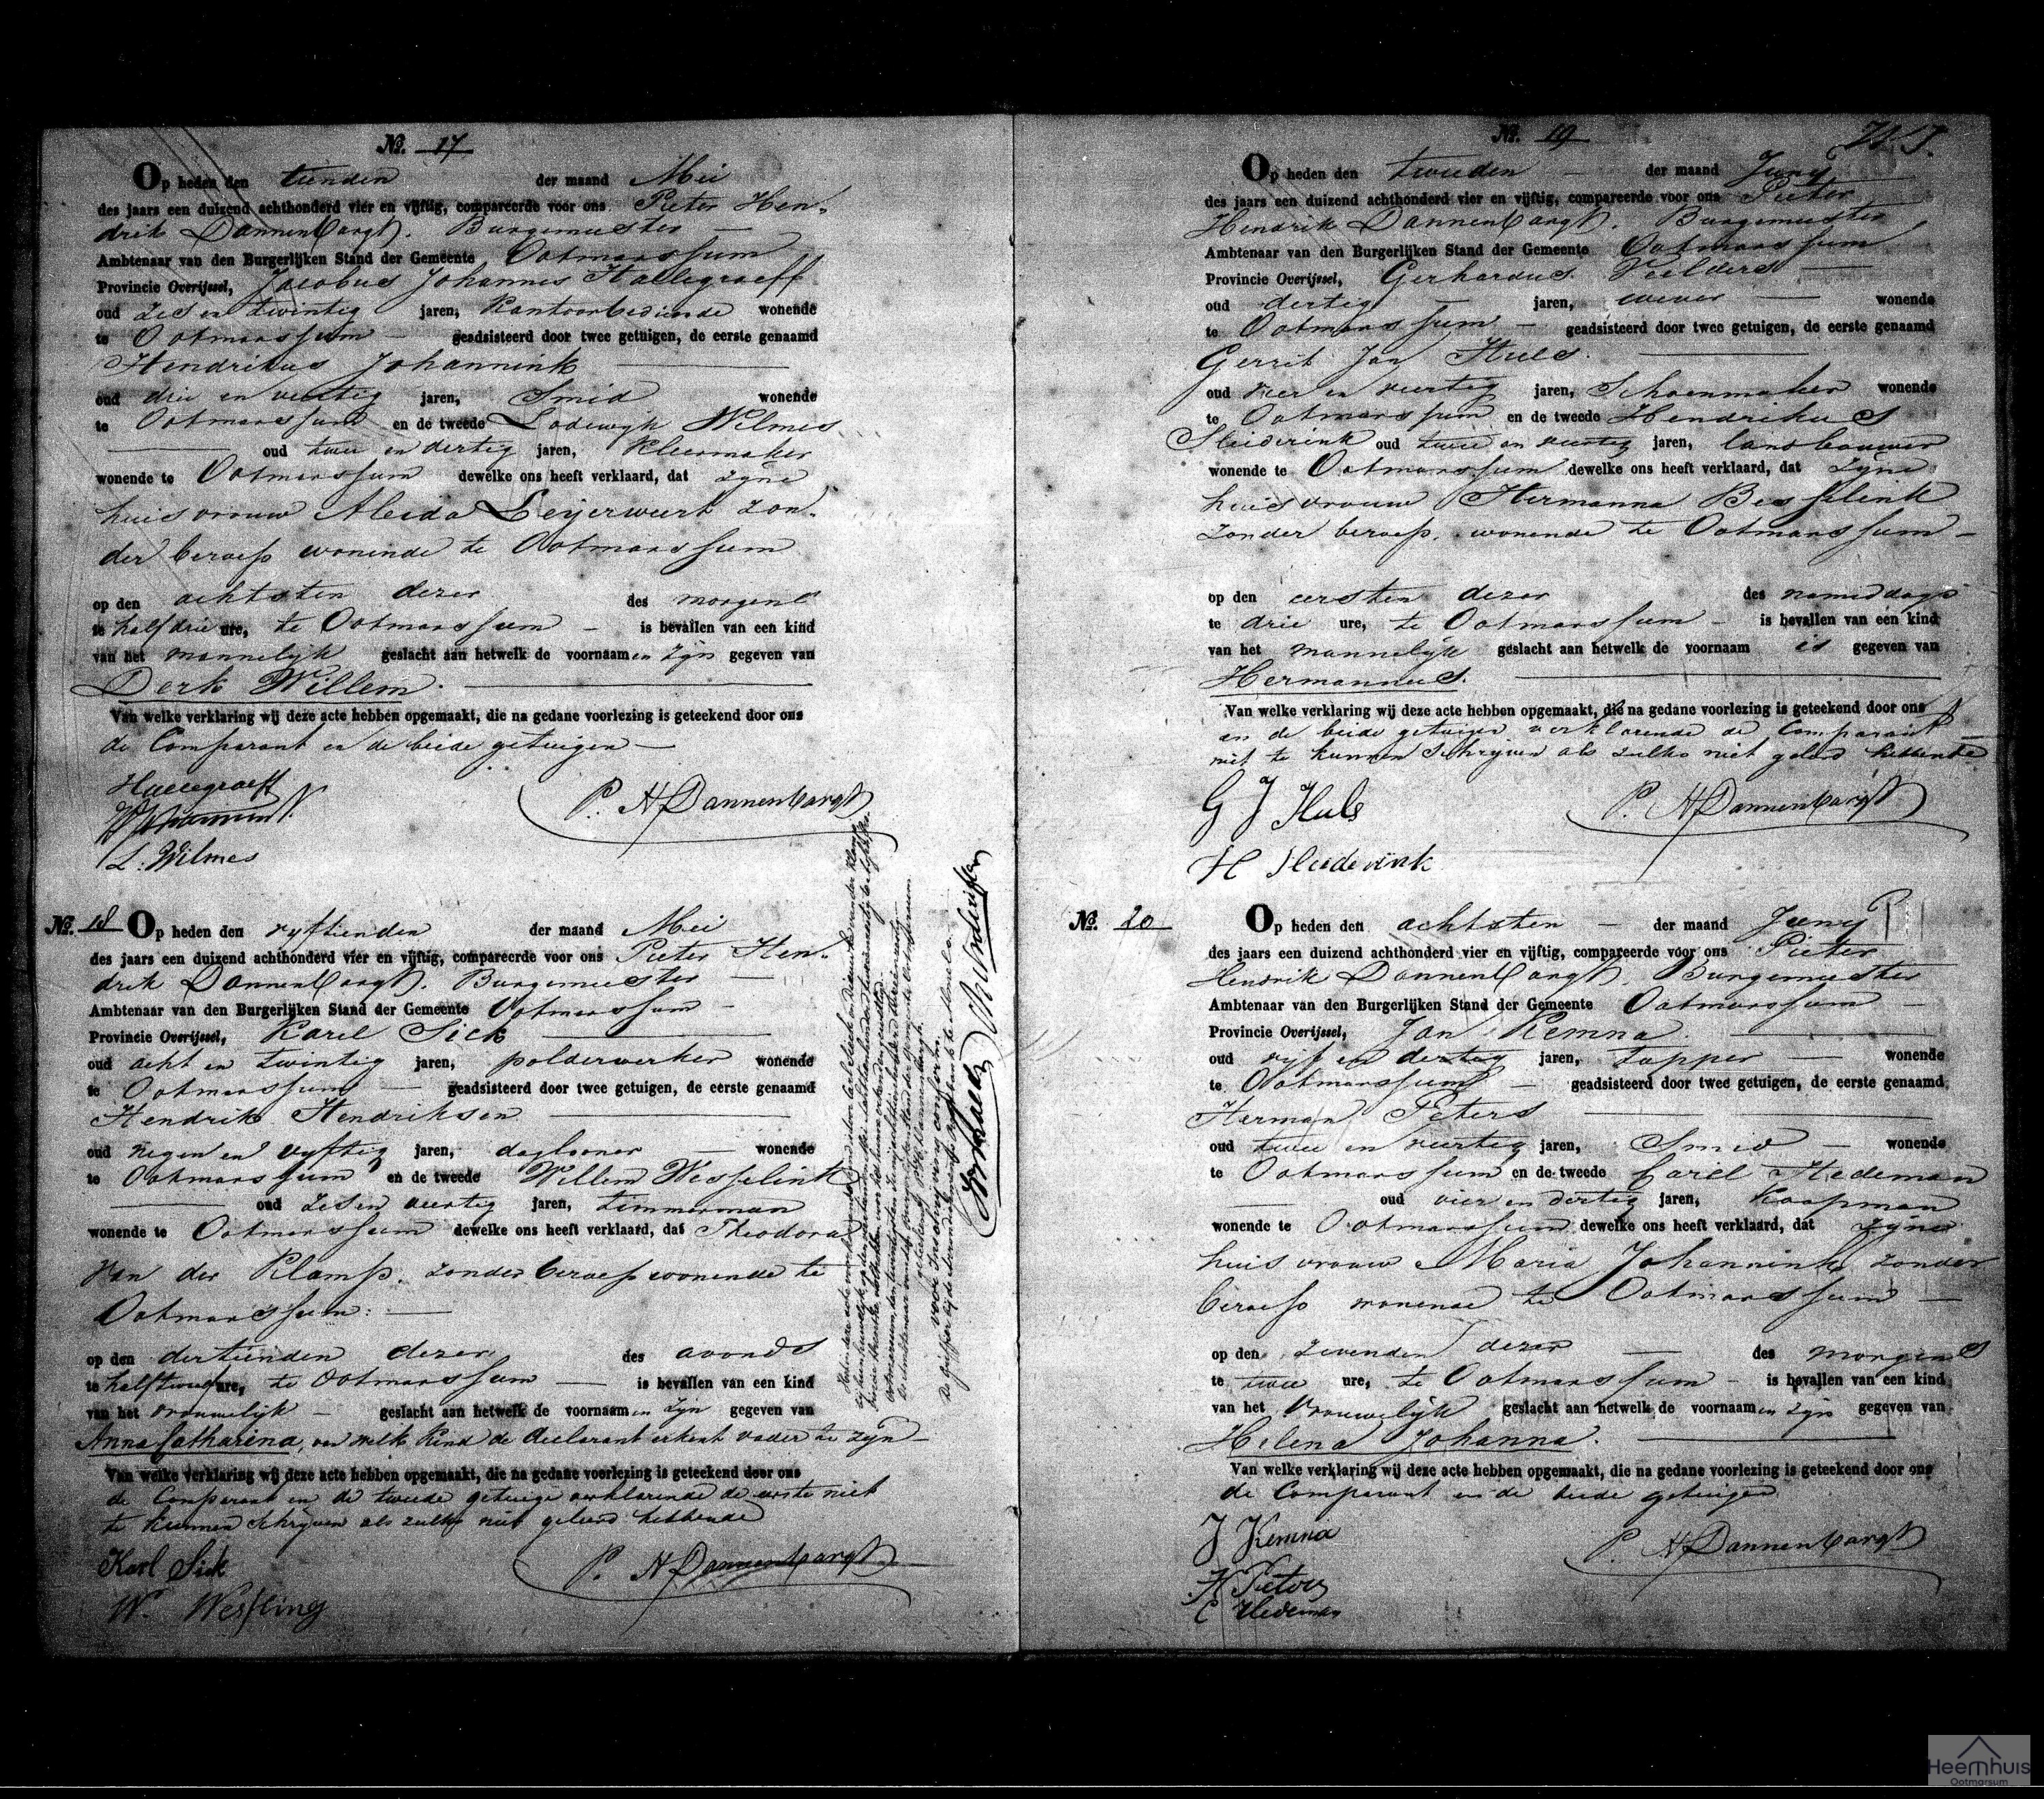 No. 17
Op heden den tienden der maand Mei
des jaars een duizend achthonderd vier en vijftig, compareerde voor ons Pieter Hen-
drik Dannenbargh. Burgemeester
Ambtenaar van den Burgerlijken Stand der Gemeente Ootmarssum
Provincie Overijssel, Jacobus Johannes Hallegraeff
oud zes en twintig jaren, Kantoorbediende wonende
te Ootmarssum geadsisteerd door twee getuigen, de eerste genaamd
Hendrikus Johannink
oud drie en veertig jaren, Smid wonende
te Ootmarssum en de tweede Lodewyk Wilmes
oud twee en dertig jaren, Kleermaker
wonende te Ootmarssum dewelke ons heeft verklaard, dat zyne
huisvrouw Aleida Leijerweert zon-
der beroep wonende te Ootmarssum
op den achtsten dezer des morgens
te half drie ure, te Ootmarssum is bevallen van een kind
van het mannelyk geslacht aan hetwelk de voornaamen zyn gegeven van
Derk Willem.
Van welke verklaring wij deze acte hebben opgemaakt, die na gedane voorlezing is geteekend door ons
de Comparant en de beide getuigen
Hallegraeff
P. H Dannenbargh
L. Wilmes
No. 18 Op heden den vyftienden der maand Mei
des jaars een duizend achthonderd vier en vijftig, compareerde voor ons Pieter Hen-
drik Dannenbargh. Burgemeester
Ambtenaar van den Burgerlijken Stand der Gemeente Ootmarssum
Provincie Overijssel, Karel Sick
oud acht en twintig jaren, polderwerker wonende
te Ootmarssum geadsisteerd door twee getuigen, de eerste genaamd
Hendrik Hendriksen
oud negen en vyftig jaren, daglooner wonende
te Ootmarssum en de tweede Willem Wesselink
oud zes en veertig jaren, timmerman
wonende te Ootmarssum dewelke ons heeft verklaard, dat Theodora
van der Klamp. zonder beroep wonende te
Ootmarssum.
op den dertienden dezer des avonds
te half twaalf ure, te Ootmarssum is bevallen van een kind
van het vrouwelyk geslacht aan hetwelk de voornaamen zyn gegeven van
Anna Catharina, van welk kind de declarant erkent vader te zyn
Van welke verklaring wij deze acte hebben opgemaakt, die na gedane voorlezing is geteekend door ons
de Comparant en de tweede getuige verklarende de eerste niet
te kunnen schryven als zulks niet geleerd hebbende
Karl Sick
P. H Dannenbargh
W. Wessling
voor Inschryving conform.
No. 19
Op heden den tweeden der maand Juny
des jaars een duizend achthonderd vier en vijftig, compareerde voor ons Pieter
Hendrik Dannenbargh. Burgemeester
Ambtenaar van den Burgerlijken Stand der Gemeente Ootmarssum
Provincie Overijssel, Gerhardus Veelders
oud dertig jaren, wever wonende
te Ootmarssum geadsisteerd door twee getuigen, de eerste genaamd
Gerrit Jan Huls.
oud vier en veertig jaren, Schoenmaker wonende
te Ootmarssum en de tweede Hendrikus
Sleiderink oud twee en veertig jaren, landbouwer
wonende te Ootmarssum dewelke ons heeft verklaard, dat zyne
huisvrouw Hermanna Besselink
zonder beroep. wonende te Ootmarssum
op den eersten dezer des namiddags
te drie ure, te Ootmarssum is bevallen van een kind
van het mannelyk geslacht aan hetwelk de voornaam is gegeven van
Hermannus.
Van welke verklaring wij deze acte hebben opgemaakt, die na gedane voorlezing is geteekend door ons
en de beide getuigen verklarende de Comparant
niet te kunnen schryven als zulks niet geleerd hebbende
G J Huls
P. H Dannenbargh
No. 20 Op heden den achtsten der maand Juny
des jaars een duizend achthonderd vier en vijftig, compareerde voor ons Pieter
Hendrik Dannenbargh. Burgemeester
Ambtenaar van den Burgerlijken Stand der Gemeente Ootmarssum
Provincie Overijssel, Jan Kemna.
oud vyf en dertig jaren, tapper wonende
te Ootmarssum geadsisteerd door twee getuigen, de eerste genaamd
Herman Peters
oud twee en veertig jaren, Smid wonende
te Ootmarssum en de tweede Carel Hedeman
oud vier en dertig jaren, Koopman
wonende te Ootmarssum dewelke ons heeft verklaard, dat zyne
huisvrouw Maria Johannink zonder
beroep wonende te Ootmarssum
op den zevenden dezer des morgens
te twee ure, te Ootmarssum is bevallen van een kind
van het vrouwelyk geslacht aan hetwelk de voornaamen zyn gegeven van
Helena Johanna.
Van welke verklaring wij deze acte hebben opgemaakt, die na gedane voorlezing is geteekend door ons
de Comparant en de beide getuigen
J Kemna
P. H Dannenbargh
H Peters
C Hedeman
Heemhuis
Ootmarsum